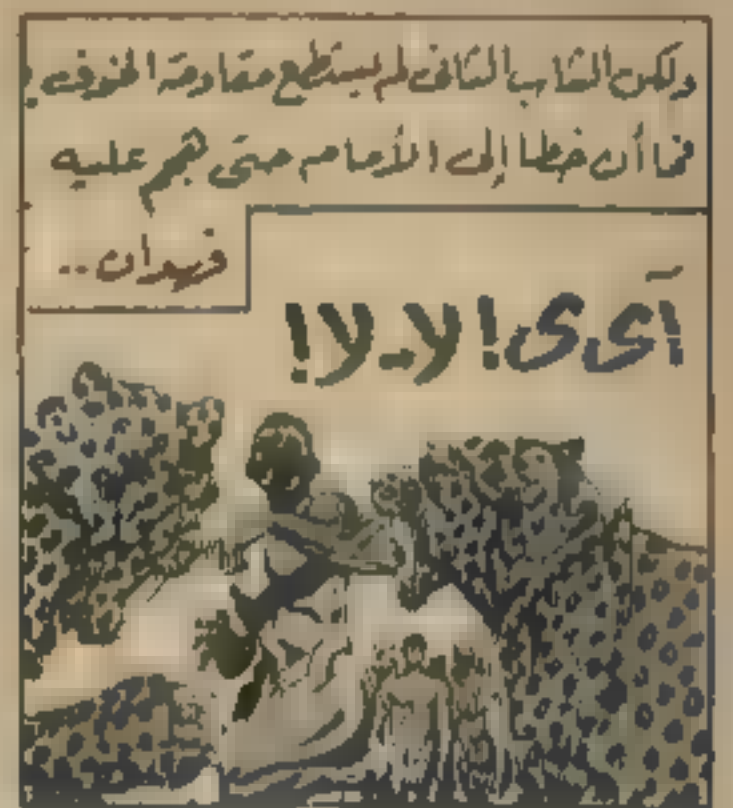 ولكن الشاب الثانى لم يستطع مقاومة الخوف ،
فما أن خطا إلى الأمام حتى هجم عليه
فهدان ..
آى ى ! لا - لا !